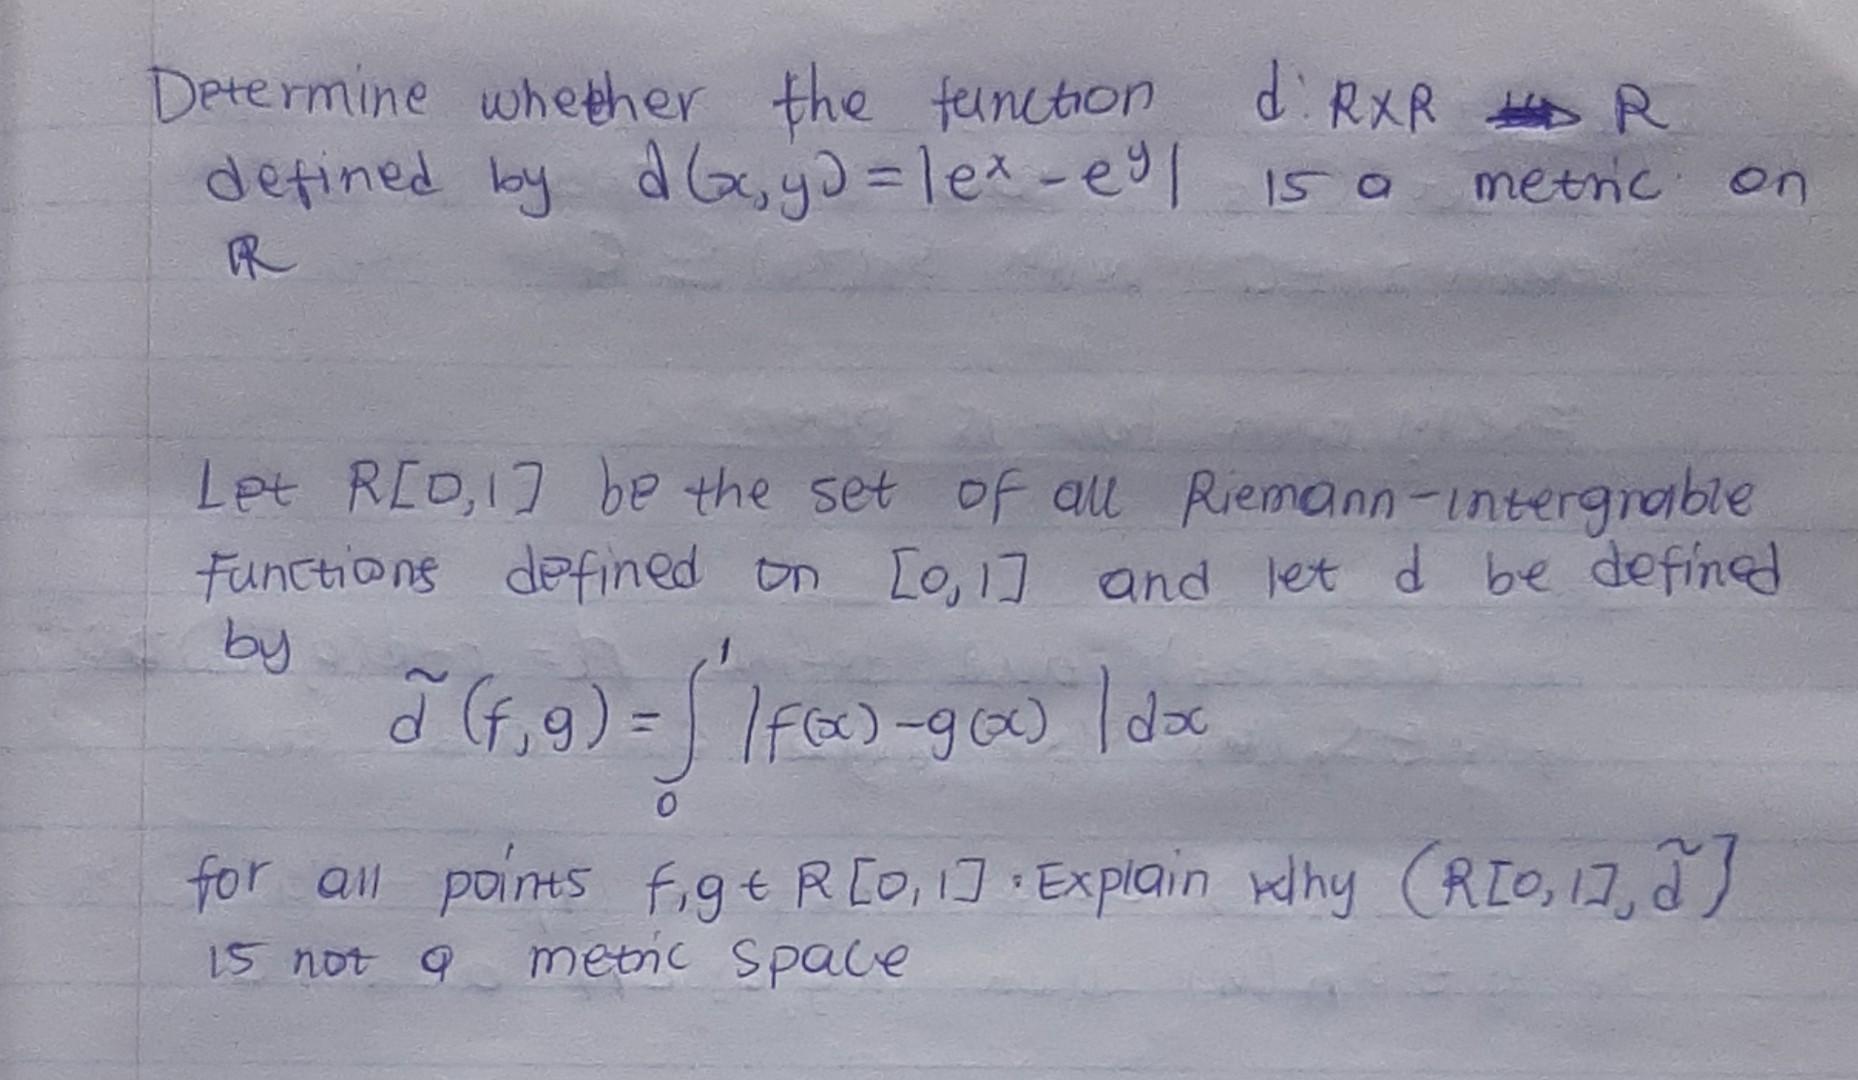 Determine whether the function d: R×R → R
defined by d(x,y) = |eˣ - eʸ| is a metric on
ℝ
Let R[0,1] be the set of all Riemann-intergrable
functions defined on [0,1] and let d be defined
by
d̃(f,g) = ∫₀¹ |f(x) - g(x)| dx
for all points f,g ∈ R[0,1]. Explain why (R[0,1], d̃]
is not a metric space